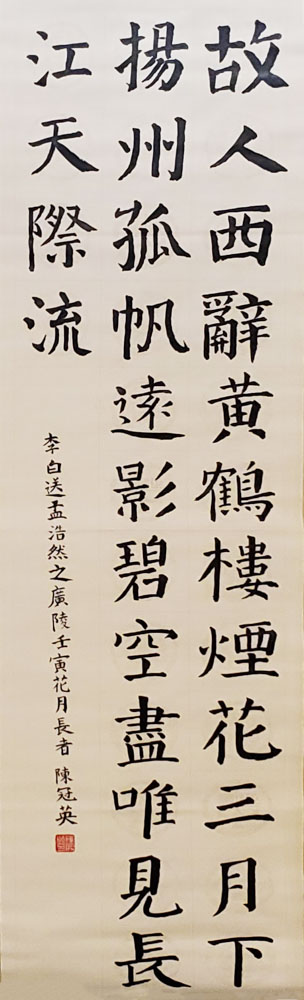 故人西辭黄鶴樓煙花三月下
揚州孤帆遠影碧空盡唯見長
江天際流
李白送孟浩然之廣陵壬寅花月長者 陳冠英